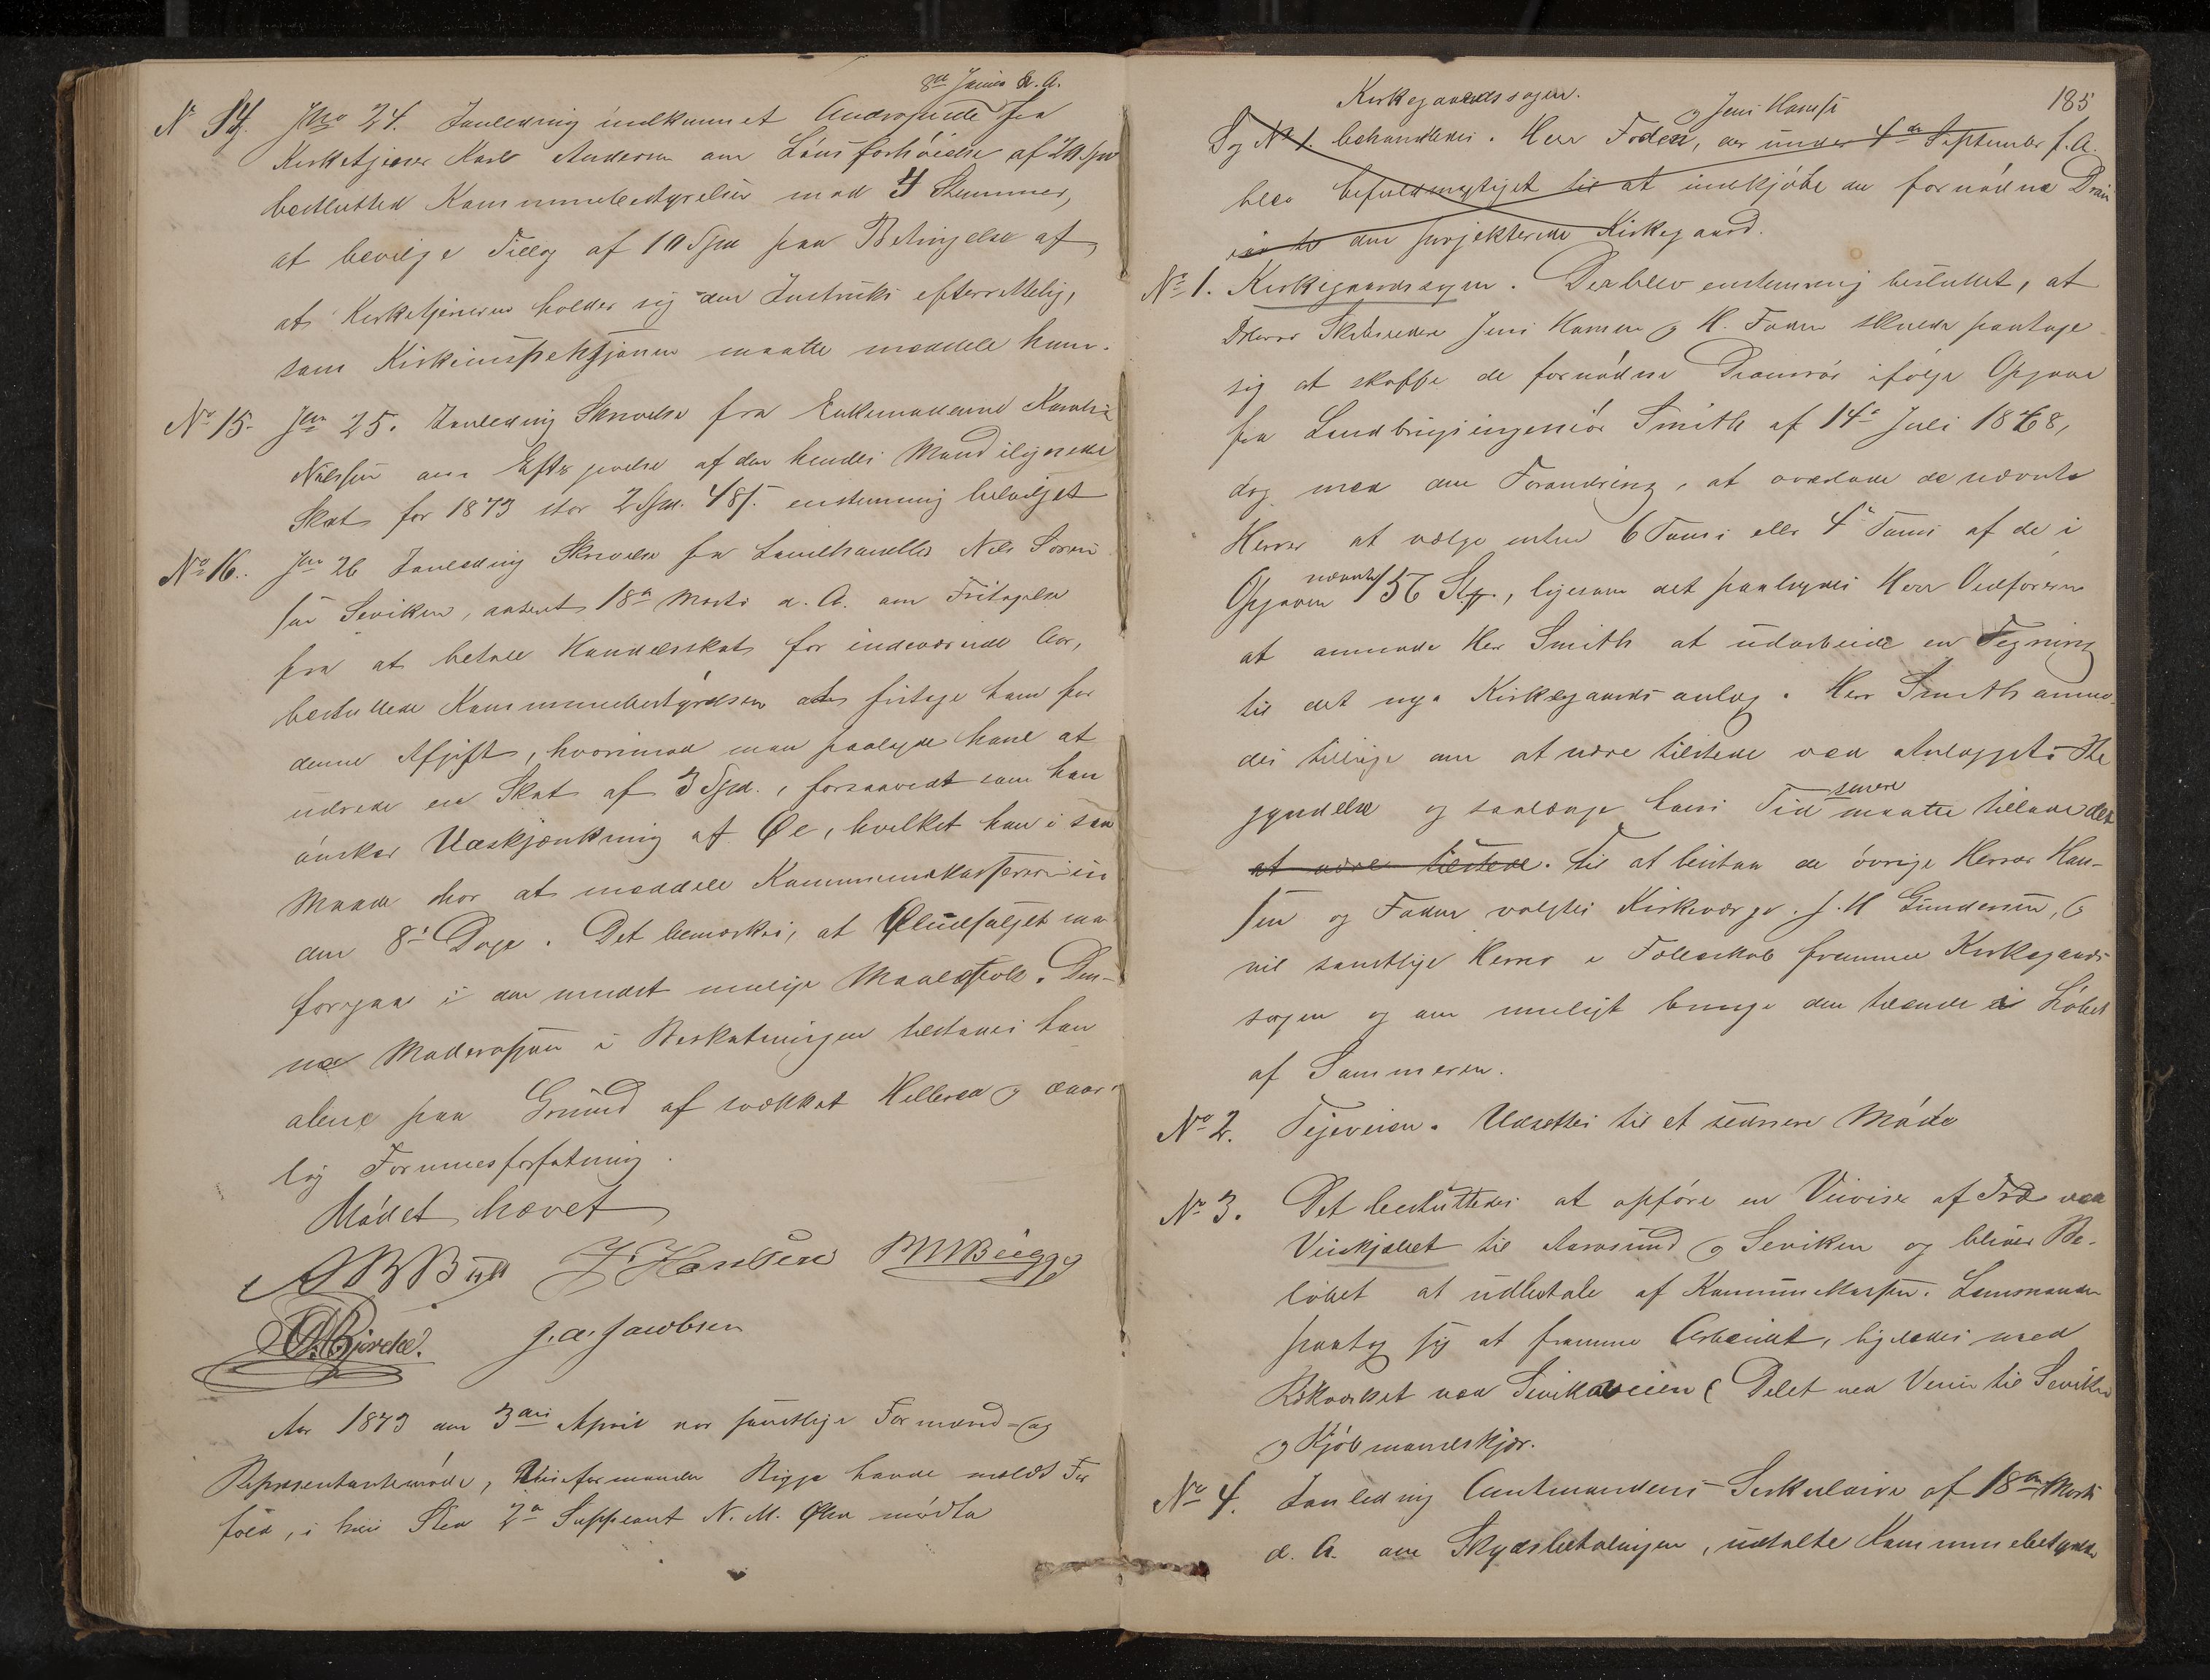 8de Januar d. A.
No 14. Jno 24. I anledning indkommet Andragende fra
Kirketjener Karl Andersen om Lønsforhøielse af 20 Spd
beslutted Kommunebestyrelsen mod 4 Stemmer,
at bevilge Tillæg af 10 Spd paa Betingelse af,
at Kirketjeneren holder sig den Instruks efterrettelig,
som Kirkeinspektjonen maatte meddele ham.
No 15. Jno 25. I anledning Skrivelse fra Enkemadame Karoline
Nilssen om Eftergivelse af den hendes Mand ilignede
Skat for 1873 stor 2 Spd. 48 s. enstemmig bevilget
No 16. Jno 26 I anledning Skrivelse fra Landhandler Nils Søren-
sen Seviken, dateret 18de Marts d. A. om Fritagelse
fra at betale Handelsskat for indeværende Aar,
besluttede Kommunebestyrelsen at fritage ham for
denne Afgift, hvorimod man paalagde ham at
udrede en Skat af 3 Spd., forsaavidt som han
ønsker Udskjænkning af Øl, hvilket han i saa
Maade har at meddele Kommunekassereren in-
den 8te Dage. Det bemærkes, at Øludsalget maa
foregaa i den mindst mulige Maalestok. Den-
ne Moderasjon i Beskatningen tilstaaes ham
alene paa Grund af svækket Helbred og daar-
lig Formuesforfatning.
Mødet hævet
A B Bull J. Hansen M Bugge
O. Bjercke. J. A. Jacobsen
Aar 1873 den 3die April var samtlige Formænd- og
Repræsentantmøde, Viseformanden Bugge havde meldt For
fald, i hans Sted 2den Suppleant N. M. Olsen mødte
185
Kirkegaardssagen.
og Jens Hansen
Sag No 1. behandledes. Herr Foden, der under 4de September f. A.
blev befuldmægtiget til at indkjøbe de fornødne Drain
rør til den projekterede Kirkegaard.
No 1. Kirkegaardssagen. Der blev enstemmig besluttet, at
DHerrer Skibsreder Jens Hansen og H. Foden skulde paatage
sig at skaffe de fornødne Drainrør ifølge Opgave
fra Landbrugsingeniør Smith af 14de Juli 1868,
dog med den Forandring, at overlade de nævnte
Herrer at vælge enten 6 Toms eller 4 Toms af de i
Opgaven nævnte 156 Stk., ligesom det paalægdes Herr Ordføreren
at anmode Herr Smith at udarbeide en Tegning
til det nye Kirkegaardsanlæg. Herr Smith anmo-
des tillige om at være tilstede ved Anlæggets Be
gyndelse og saalænge hans Tid senere maatte tillade det
at være tilstede. Til at bistaa de øvrige Herrer Han-
sen og Foden valgtes Kirkeværge J. H Gundersen, og
vil samtlige Herrer i Fællesskab fremme Kirkegaards
sagen og om muligt bringe den tilende i Løbet
af Sommeren.
No 2. Teieveien. Udsættes til et senere Møde
No 3. Det besluttedes at opføre en Veiviser af Træ ved
Veiskjællet til Aarøsund og Seviken og bliver Be-
løbet at udbetale af Kommunekassen. Lensmanden
paatog sig at fremme Arbeidet, ligeledes med
Rækværket ved Sevikveien (Delet ved Veien til Seviken
og Kjøbmandskjær.
No 4. I anledning Amtmandens Sirkulaire af 18de Marts
d. A. om Skydsbetalingen, udtalte Kommunebestyrelsen